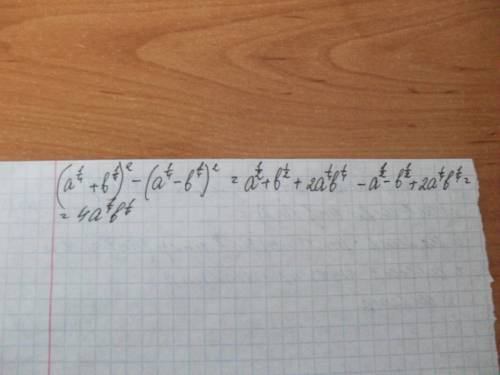 (a^{1/4} + b^{1/4})^2 - (a^{1/4} - b^{1/4})^2 = a^{1/2} + b^{1/2} + 2a^{1/4}b^{1/4} - a^{1/2} - b^{1/2} + 2a^{1/4}b^{1/4} =
= 4a^{1/4}b^{1/4}